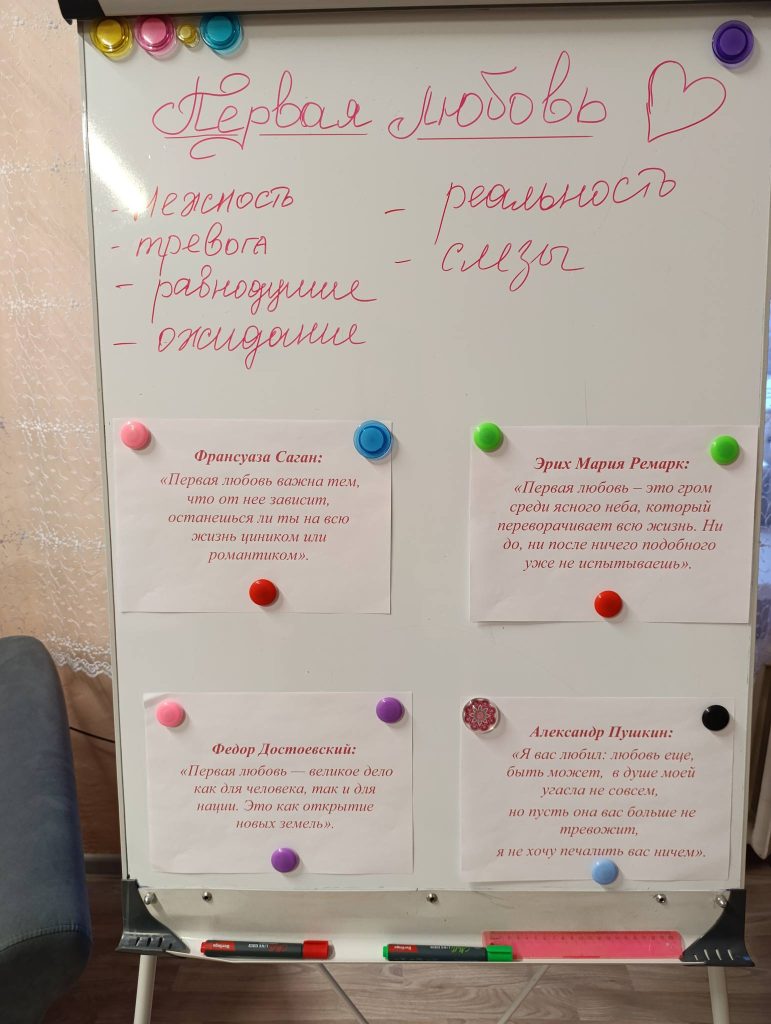 Первая любовь
- Нежность
- тревога
- равнодушие
- ожидание
- реальность
- слезы
Франсуаза Саган:
«Первая любовь важна тем,
что от нее зависит,
останешься ли ты на всю
жизнь циником или
романтиком».
Эрих Мария Ремарк:
«Первая любовь – это гром
среди ясного неба, который
переворачивает всю жизнь. Ни
до, ни после ничего подобного
уже не испытываешь».
Федор Достоевский:
«Первая любовь — великое дело
как для человека, так и для
нации. Это как открытие
новых земель».
Александр Пушкин:
«Я вас любил: любовь еще,
быть может, в душе моей
угасла не совсем,
но пусть она вас больше не
тревожит,
я не хочу печалить вас ничем».